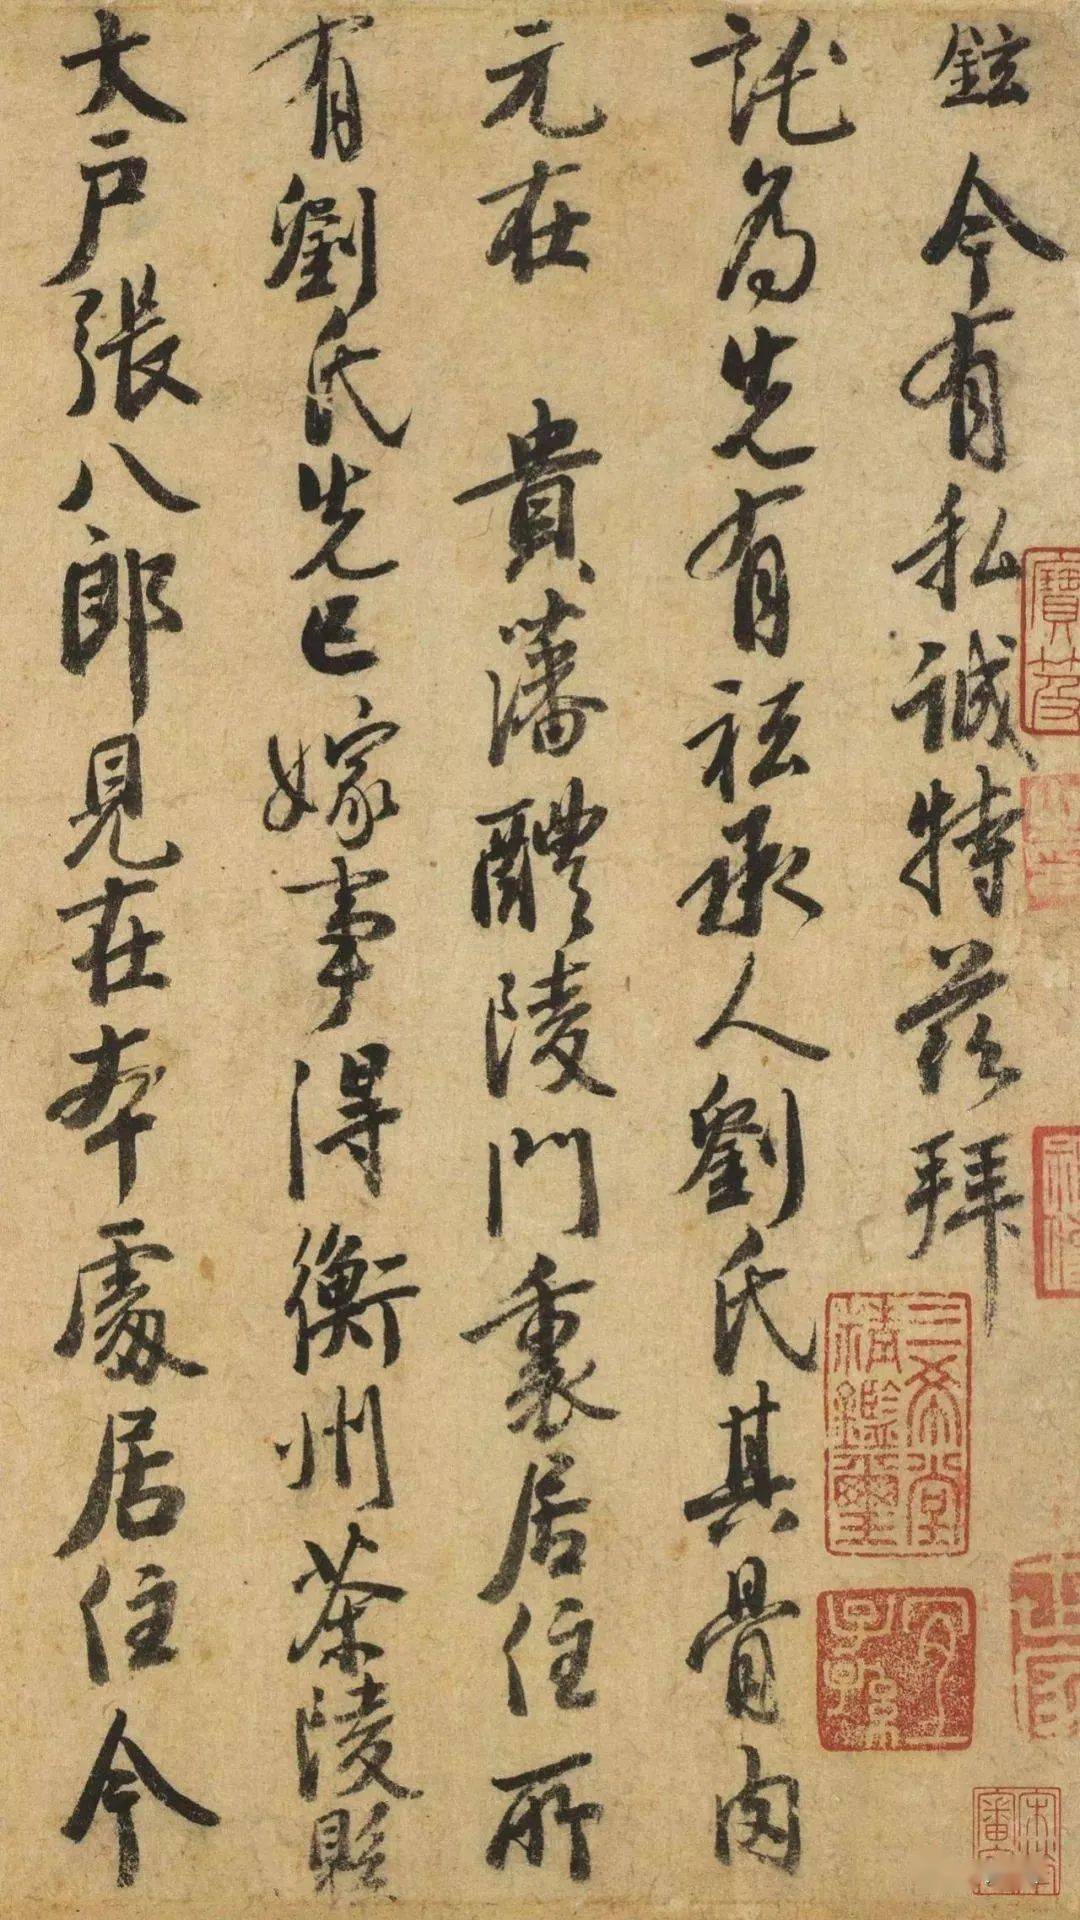 鉉今有私誠特茲拜
託為先有祗承人劉氏其骨肉
元在 貴藩醴陵門裏居住所
有劉氏先已嫁事得衡州茶陵縣
大戶張八郎見在本處居住今
三希堂
精鑑璽
宜
子孫